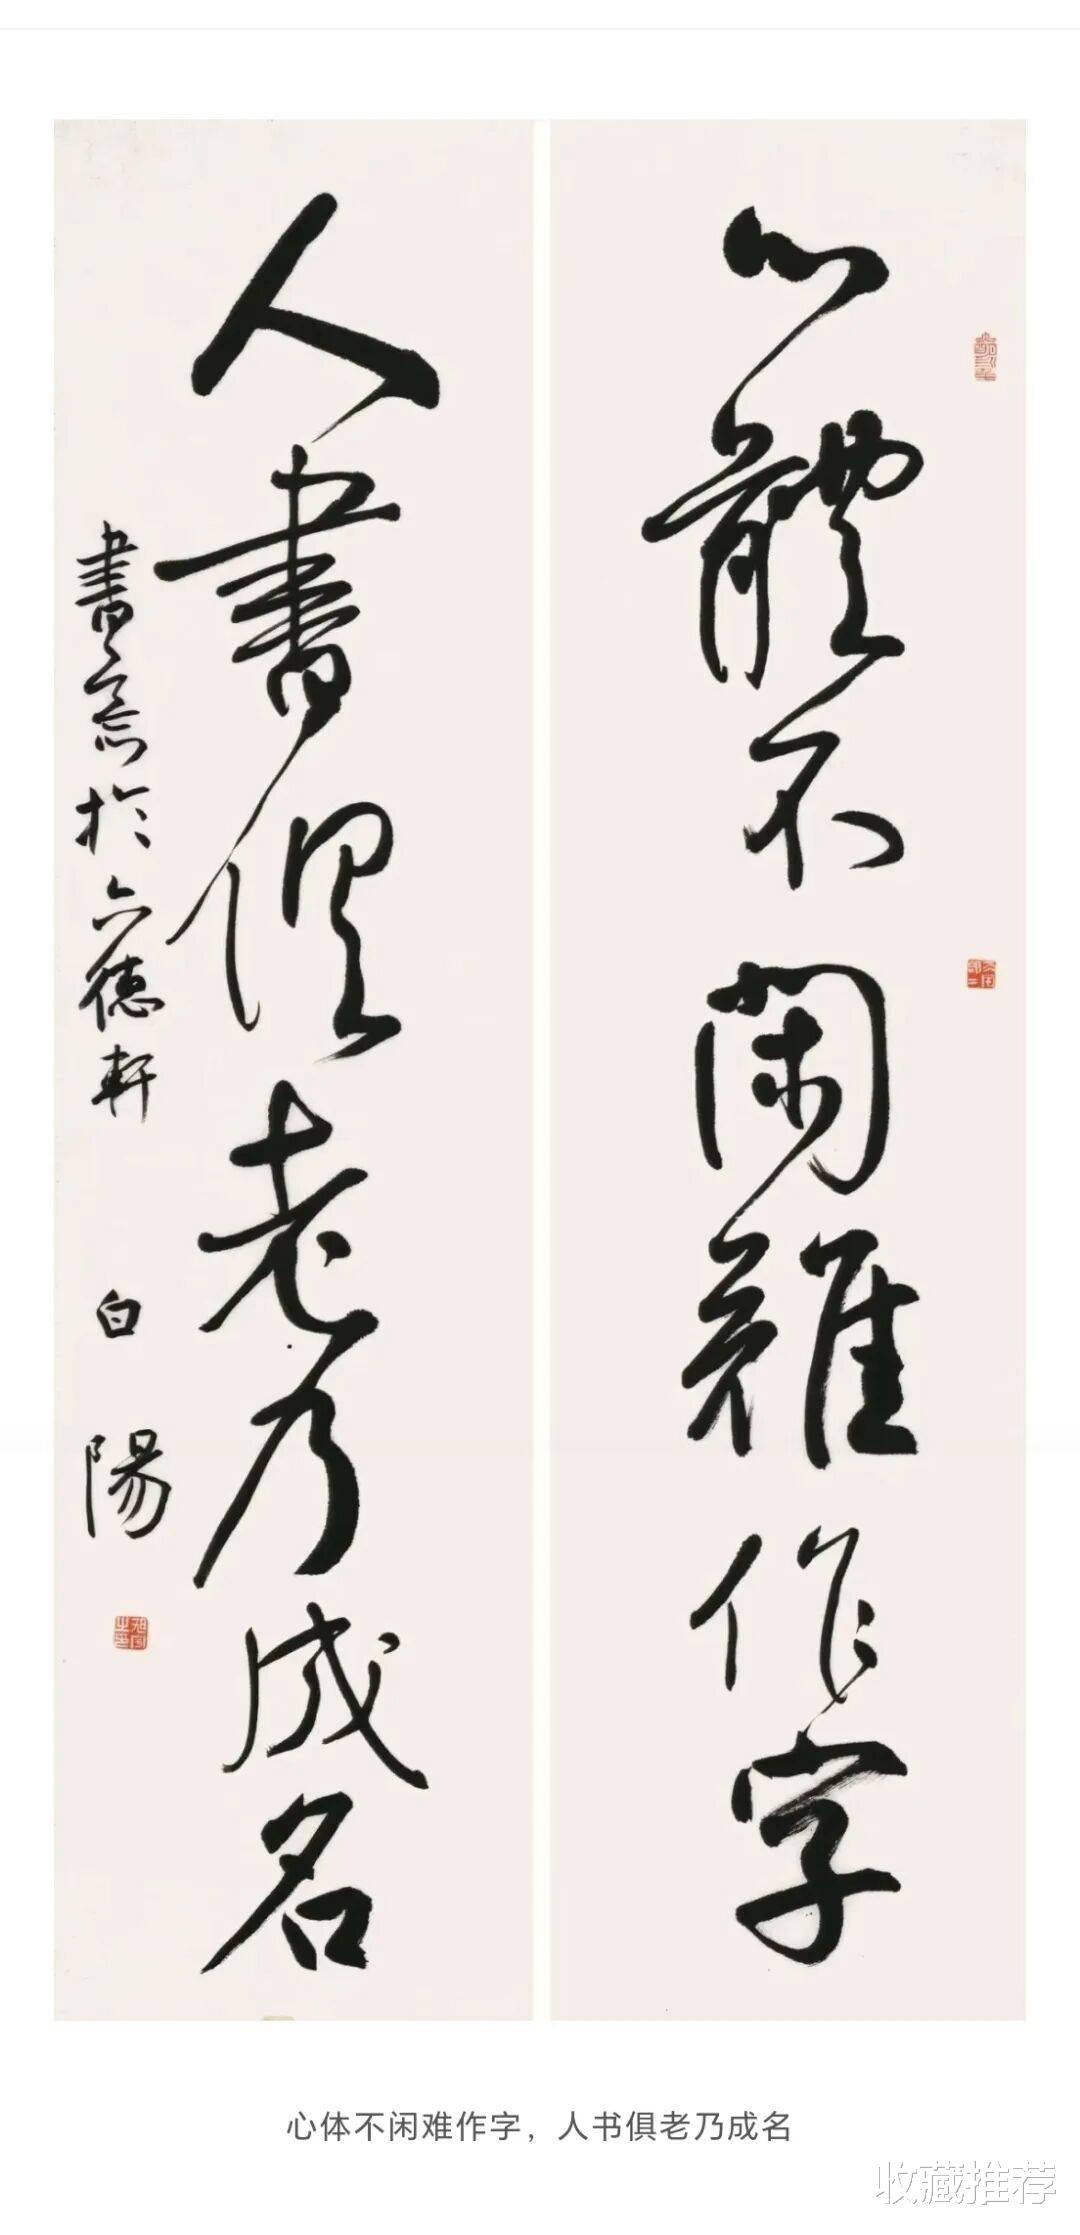 心體不閑難作字
人書俱老乃成名
書意於六德軒
白陽
心体不闲难作字，人书俱老乃成名
收藏推荐